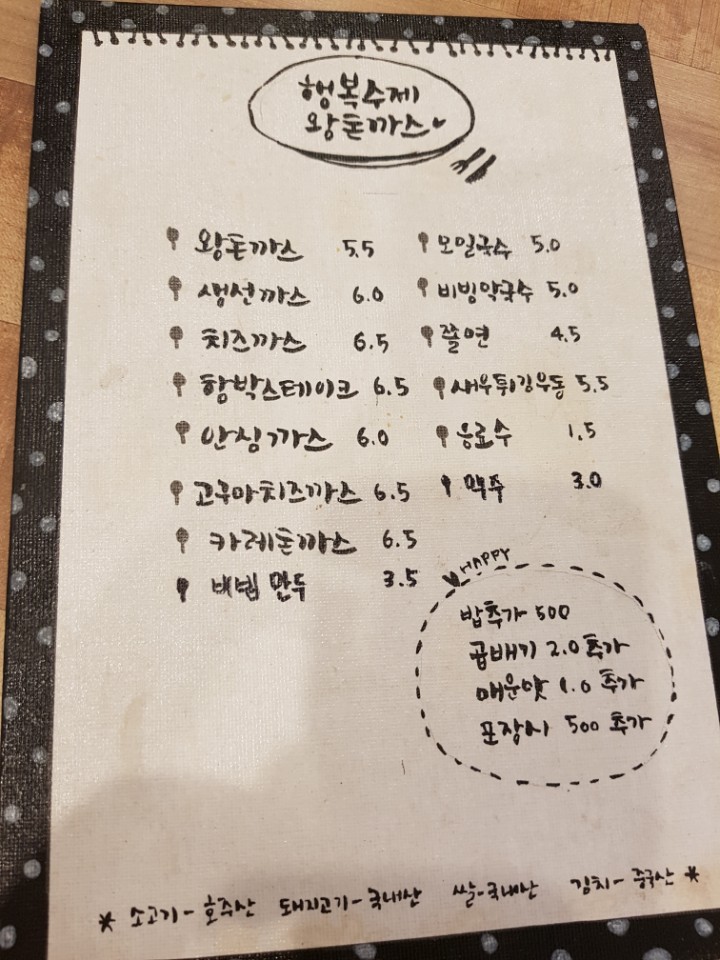 행복수제
왕돈까스
왕돈까스 5.5
생선까스 6.0
치즈까스 6.5
함박스테이크 6.5
안심까스 6.0
고구마치즈까스 6.5
카레돈까스 6.5
비빔만두 3.5
모밀국수 5.0
비빔막국수 5.0
쫄면 4.5
새우튀김우동 5.5
음료수 1.5
맥주 3.0
HAPPY
밥추가 500
곱배기 2.0 추가
매운맛 1.0 추가
포장시 500 추가
* 소고기-호주산 돼지고기-국내산 쌀-국내산 김치-중국산 *